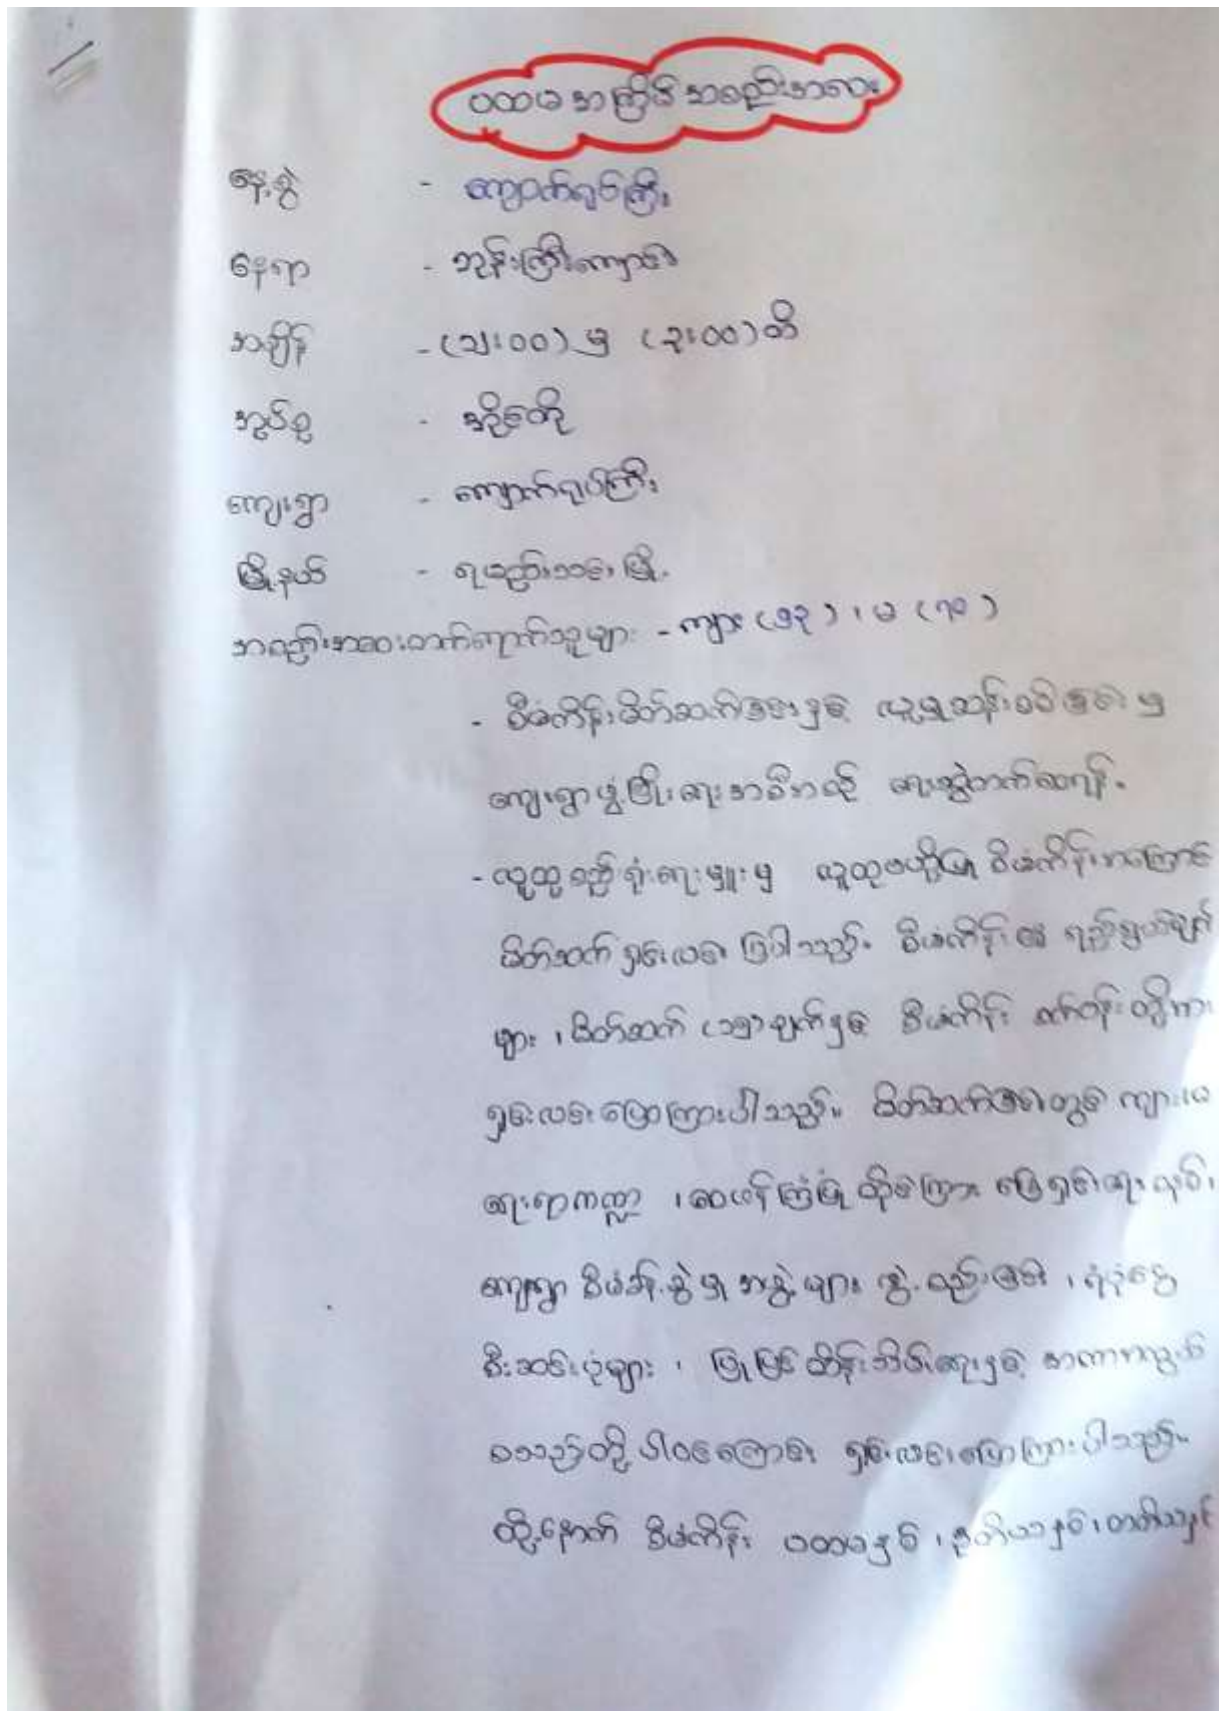 ပထမ အကြိမ် အစည်းအဝေး
နေ့စွဲ - ကျောက်ရုပ်ကြီး
နေရာ - ဘုန်းကြီးကျောင်း
အချိန် - (၁း၀၀) မှ (၃း၀၀) ထိ
အုပ်စု - အိုင်တို
ကျေးရွာ - ကျောက်ရုပ်ကြီး
မြို့နယ် - ရမည်းသင်းမြို့
အစည်းအဝေးတက်ရောက်သူများ - ကျား (၅၃) ၊ မ (၇၀)
- စီမံကိန်းမိတ်ဆက်ခြင်းနှင့် လူမှုဆန်းစစ်ခြင်းမှ
ကျေးရွာဖွံ့ဖြိုးရေးအစီအစဉ် ရေးဆွဲတက်စေရန်။
- လူထုစည်းရုံးရေးမှူးမှ လူထုဗဟိုပြု စီမံကိန်းအကြောင်း
မိတ်ဆက် ရှင်းလင်း ပြပါသည်။ စီမံကိန်း၏ ရည်ရွယ်ချက်
များ ၊ မိတ်ဆက် (၁၅) ချက်နှင့် စီမံကိန်း စက်ဝန်းတို့အား
ရှင်းလင်းပြောကြားပါသည်။ မိတ်ဆက်ခြင်းတွင် ကျား၊မ
ရေးရာကဏ္ဍ ၊ ဝေဖန်အကြံပြု တိုင်ကြား ဖြေရှင်းရေး လုပ်၊
ကျေးရွာ စီမံခန့်ခွဲမှု အဖွဲ့များ ဖွဲ့စည်းခြင်း ၊ ရံပုံငွေ
စီးဆင်းပုံများ ၊ ပြုပြင်ထိန်းသိမ်းရေးနှင့် အကာအကွယ်
စသည်တို့ ပါဝင်ကြောင်း ရှင်းလင်းပြောကြားပါသည်။
ထို့နောက် စီမံကိန်း ပထမနှစ် ၊ ဒုတိယနှစ် ၊ တတိယနှစ်